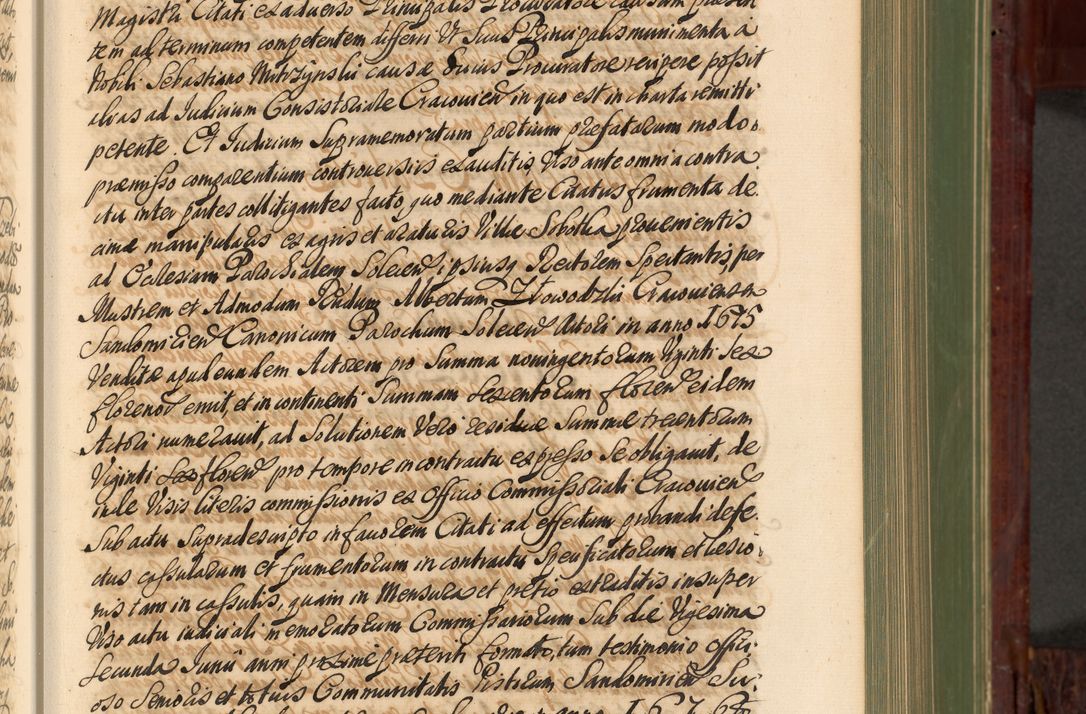 Magistri Citati ex adverso Principalis Procuratore causam præsen
tem ad terminum competentem differri Ut Suus Principalis munimenta a
Nobili Sebastiano causæ Suius Procuratore recipere possit
alias ad Judicium Consistoriale Cracovien in quo est in charta remitti
petente. Et Judicium Supramemoratum partium præfatarum modo
præmisso comparentium controversiis exauditis, Viso ante omnia contra
ctu inter partes collitigantes facto, quo mediante Citatus frumenta de
cimæ manipularis ex agris et araturis Villæ Sobotka provenientis
ad Ecclesiam Parochialem Solecen ipsiusq Rectorem Spectantis, per
Illustrem et Admodum Rndum Albertum Cracoviensem
Sandomirien Canonicum Parochum Solecen Actori in anno 1675
Venditæ apud eundem Actorem pro Summa noningentorum Viginti Sex
florenor emit, et in continenti Summam Sexentorum floren eidem
Actori numeravit, ad Solutionem Vero residuæ Summæ trecentorum
Viginti Sex floren pro tempore in contractu expresso Se obligavit, de
inde Visis literis commissionis ex Officio Commissoriali Cracovien
Sub actu Supradescripto in favorem Citati ad effectum probandi defe
ctus cassularum et frumentorum in contractu Specificatorum et lesio
nis tam in cassulis, quam in Mensura et pretio extraditis insuper
Viso actu iudiciali memoratorum Commissariorum Sub die Vigesima
Secunda Junii anni proxime præteriti formato, tum testimonio offici
oso Senioris et totius Communitatis Pistorum Sandomirien Su